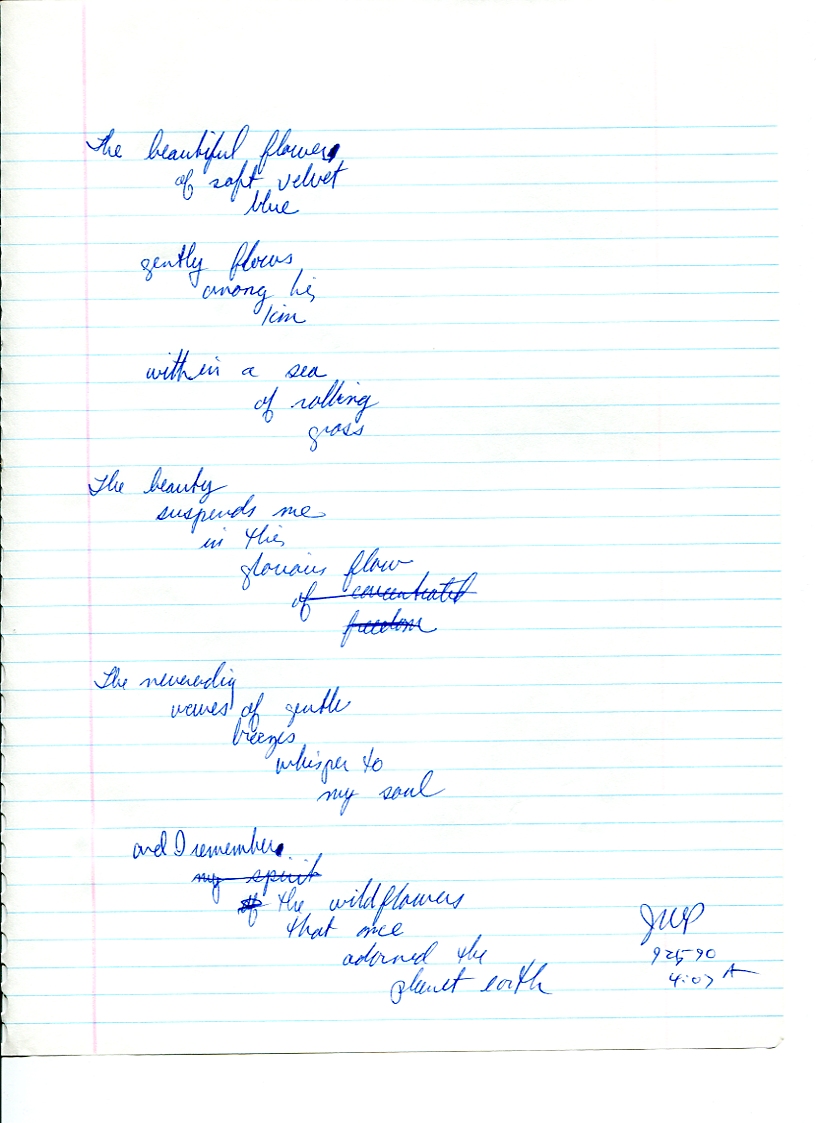 The beautiful flower
of soft velvet
blue
gently flows
among his
kin
within a sea
of rolling
grass
The beauty
suspends me
in this
glorious flow
of concentrated
freedom
The neverending
waves of gentle
breezes
whisper to
my soul
and I remember
my spirit
of the wildflowers
that once
adorned the
planet earth
JWP
9 25 90
4:07 A